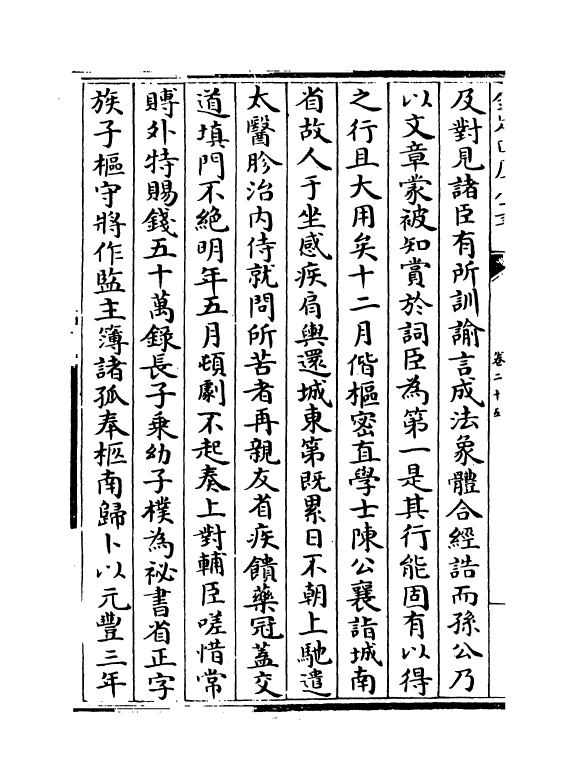 及對見諸臣有所訓諭言成法象體合經誥而孫公乃
以文章蒙被知賞於詞臣為第一是其行能固有以得
之行且大用矣十二月偕樞密直學士陳公襄詣城南
省故人于坐感疾肩輿還城東第既累日不朝上馳遣
太醫胗治内侍就問所苦者再親友省疾饋藥冠蓋交
道填門不絶明年五月頓劇不起奏上對輔臣嗟惜常
賻外特賜錢五十萬録長子乗幼子樸為祕書省正字
族子樞守將作監主簿諸孤奉柩南歸卜以元豐三年
卷二十五